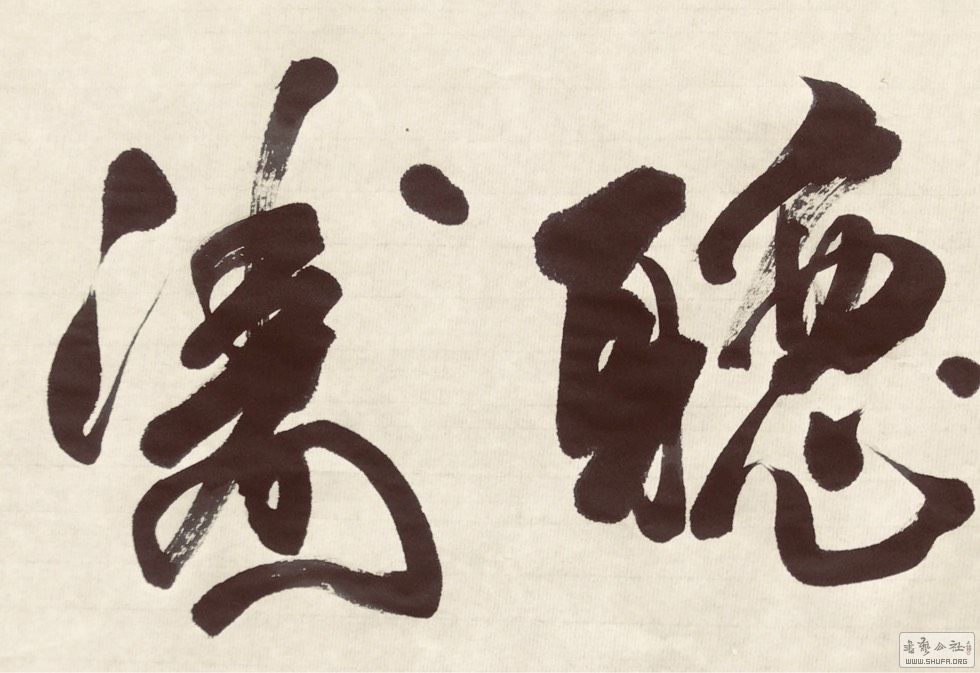 聽濤
書藝公社
WWW.SHUFA.ORG